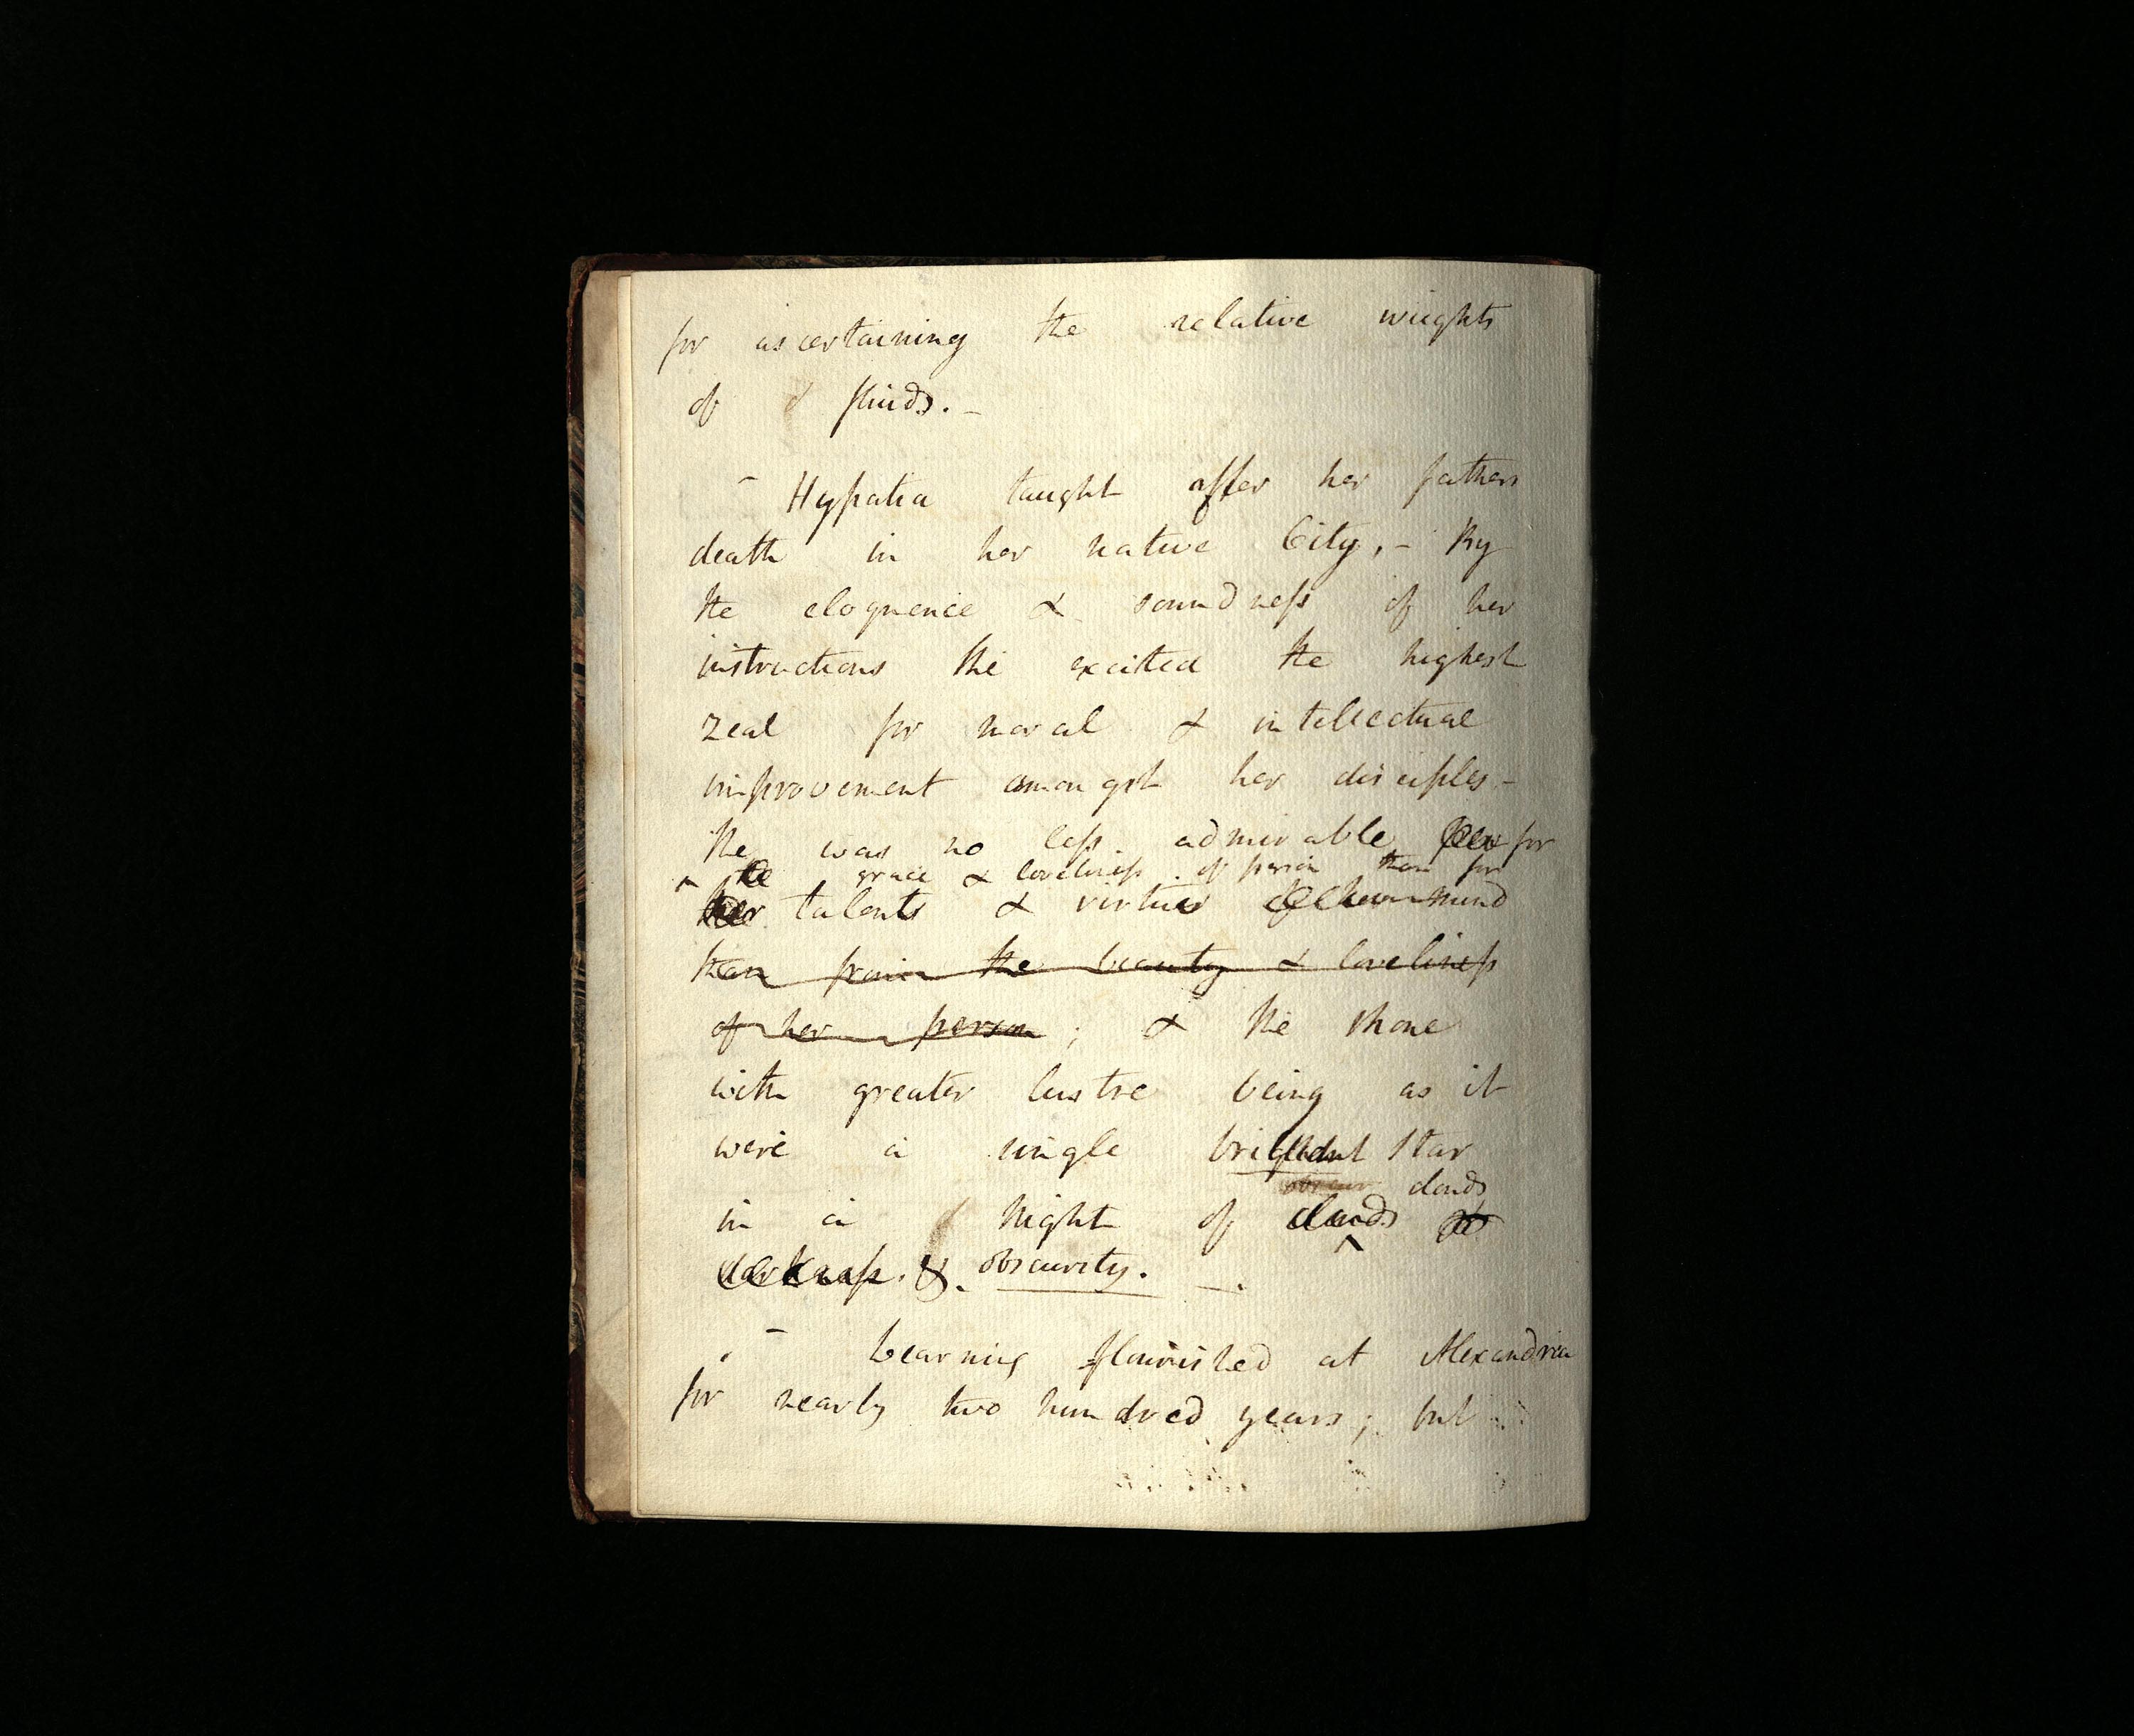 for ascertaining the relative weights
of fluids. –
– Hypatia taught after her fathers
death in her native City, – By
the eloquence & soundness of her
instructions she excited the highest
zeal for moral & intellectual
improvement amongst her disciples –
she was no less admirable for
^ the grace & loveliness of person than for
her talents & virtues of her mind
than from the beauty & loveliness
of her person ; & she shone
with greater lustre being as it
were a single star
clouds
in a night of clouds ^
darkness. & obscurity. —.
– Learning flourished at Alexandria
for nearly two hundred years; but